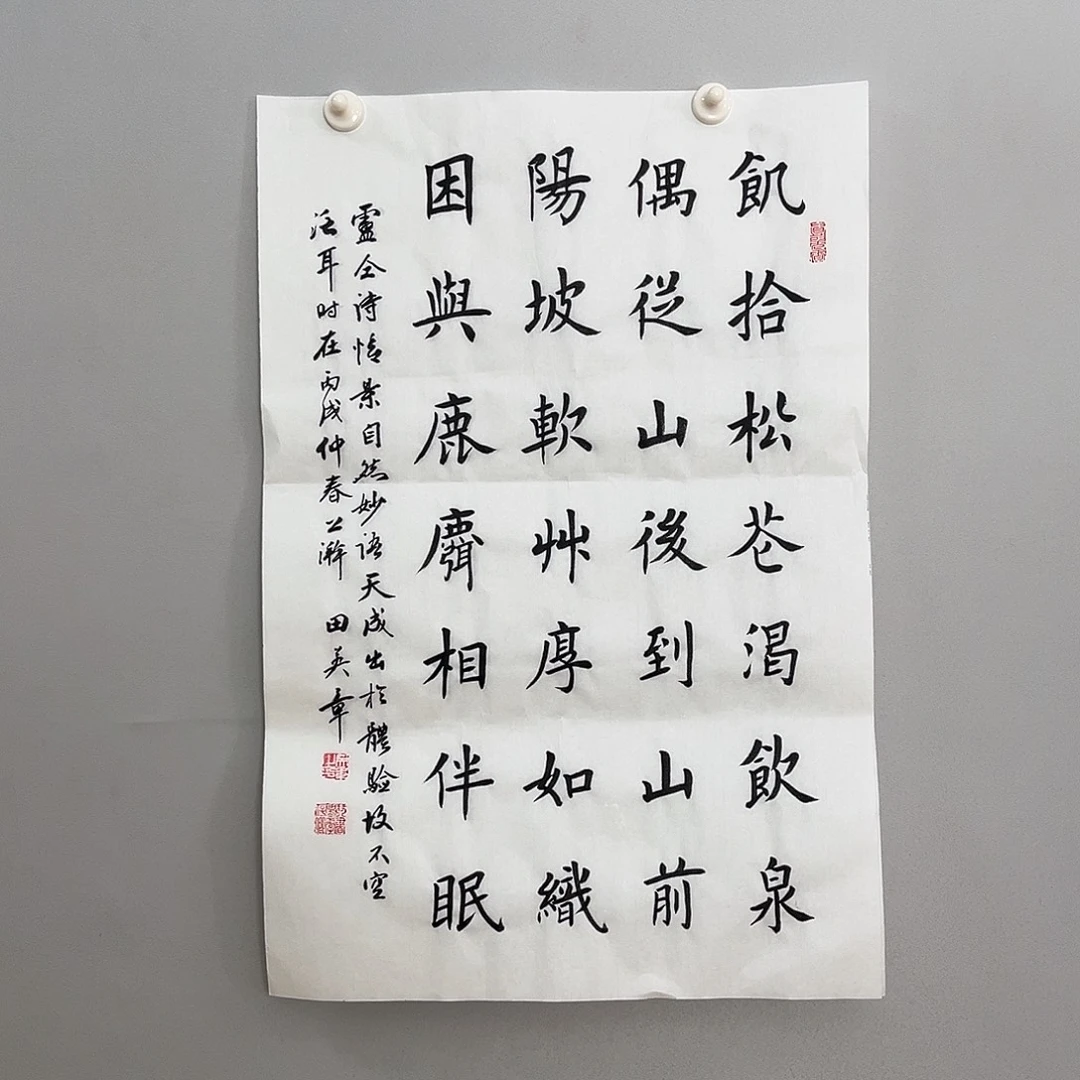 飢拾松花渴飲泉
偶從山後到山前
陽坡軟艸厚如織
困與鹿麛相伴眠
盧仝诗情景自然妙语天成出於體验故不空
泛耳时在丙戌仲春上澣 田英章